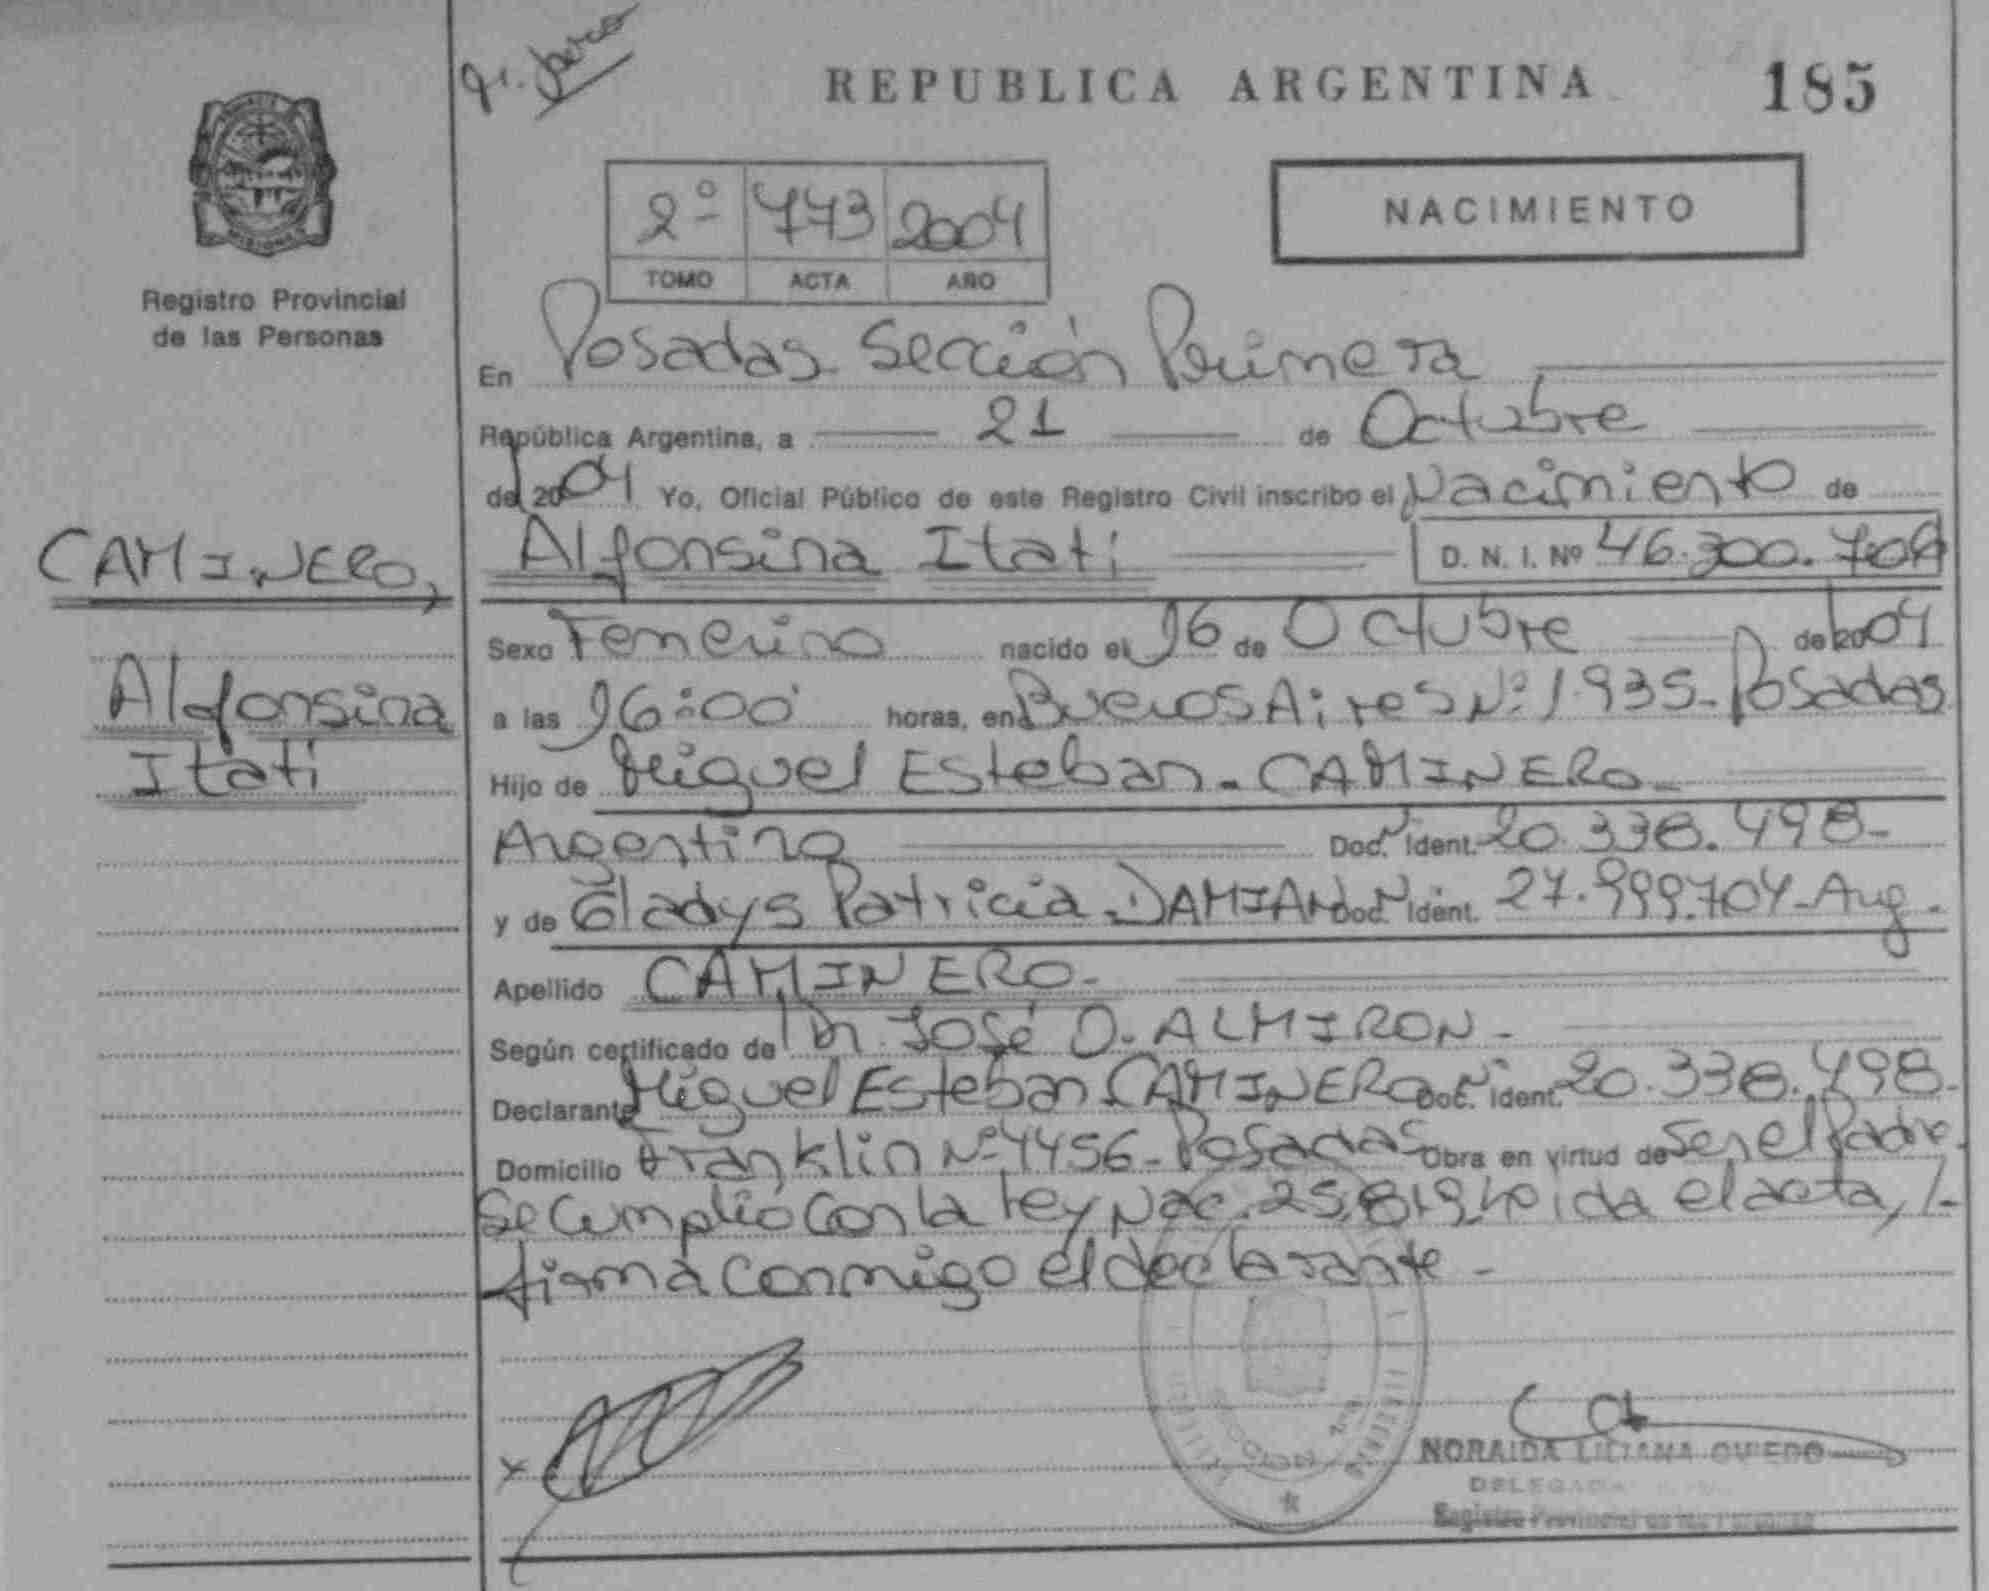 REPUBLICA ARGENTINA 185
2º 773 2004
TOMO ACTA AÑO
NACIMIENTO
Registro Provincial
de las Personas
En Posadas Sección Primera
República Argentina, a 21 de Octubre
del 2004 Yo, Oficial Público de este Registro Civil inscribo el Nacimiento de
CAMINERO,
Alfonsina Itatí
Alfonsina Itatí D. N. I. Nº 46.300.704
Sexo Femenino nacido el 16 de Octubre de 2004
a las 16:00 horas, en Buenos Aires Nº 1.935- Posadas
Hijo de Miguel Esteban - CAMINERO -
Argentino Doc. Ident. 20.338.498-
y de Gladys Patricia DAMIAN Doc. Ident. 27.999.704- Arg.
Apellido CAMINERO-
Según certificado de Dr. José O. ALMIRON -
Declarante Miguel Esteban CAMINERO Doc. Ident. 20.338.498-
Domicilio Franklin Nº 4456- Posadas Obra en virtud de Ser el Padre.
Se Cumplió Con la Ley Nac. 25.819. Leida el acta, /-
firma Conmigo el declarante -
NORAIDA LILIANA OVIEDO
DELEGADA
Registro Provincial de las Personas